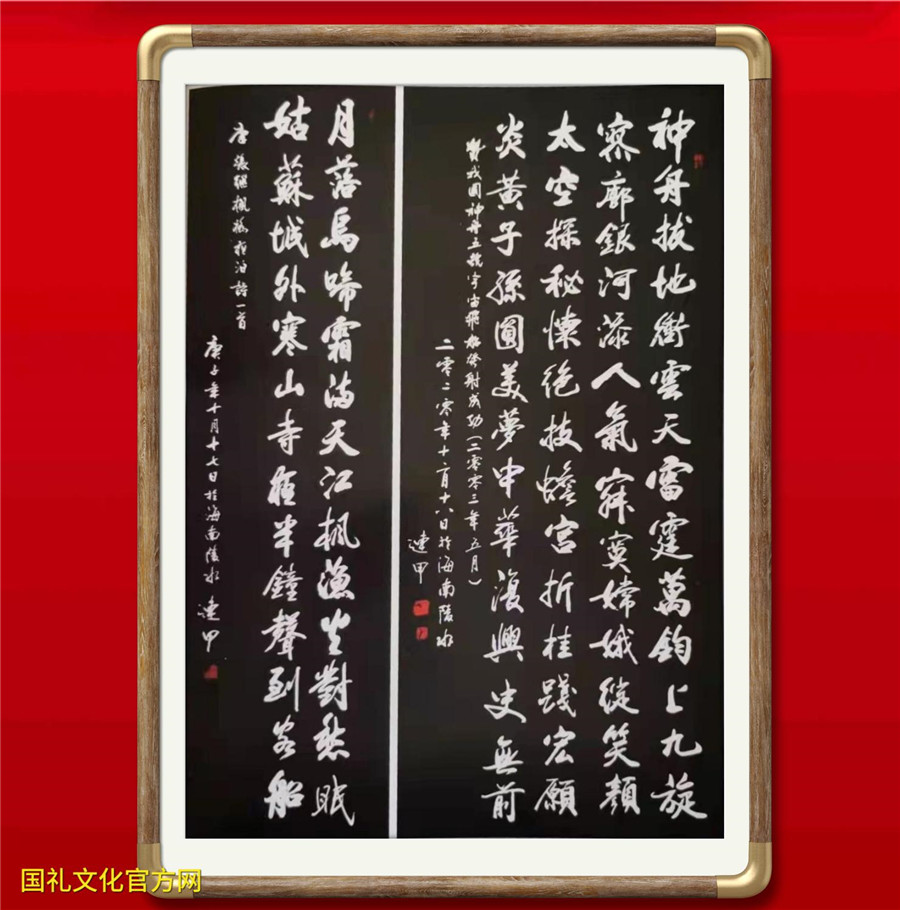 神舟拔地衝雲天雷霆萬鈞上九旋
寥廓銀河添人氣寂寞嫦娥綻笑顏
太空探秘懷絕技蟾宮折桂踐宏願
炎黃子孫圓美夢中華復興史無前
賀我國神舟五號宇宙飛船發射成功(二零零三年五月)
二零二零年十二月十八日於海南陵水
連甲
月落烏啼霜滿天江楓漁火對愁眠
姑蘇城外寒山寺夜半鐘聲到客船
唐張繼楓橋夜泊詩一首
庚子年十月十七日於海南陵水 連甲
国礼文化官方网